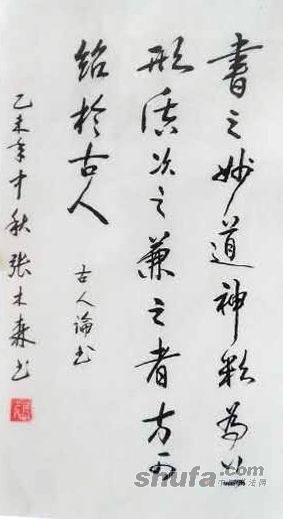 书之妙道神彩为上
形质次之兼之者方可
绍于古人
古人论书
乙未年中秋张木森书
shufa.com